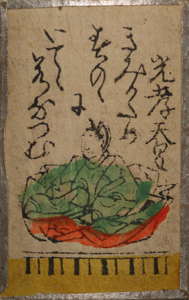 光孝天皇
きみかため
はるのゝ
に
いてゝ
わかなつむ